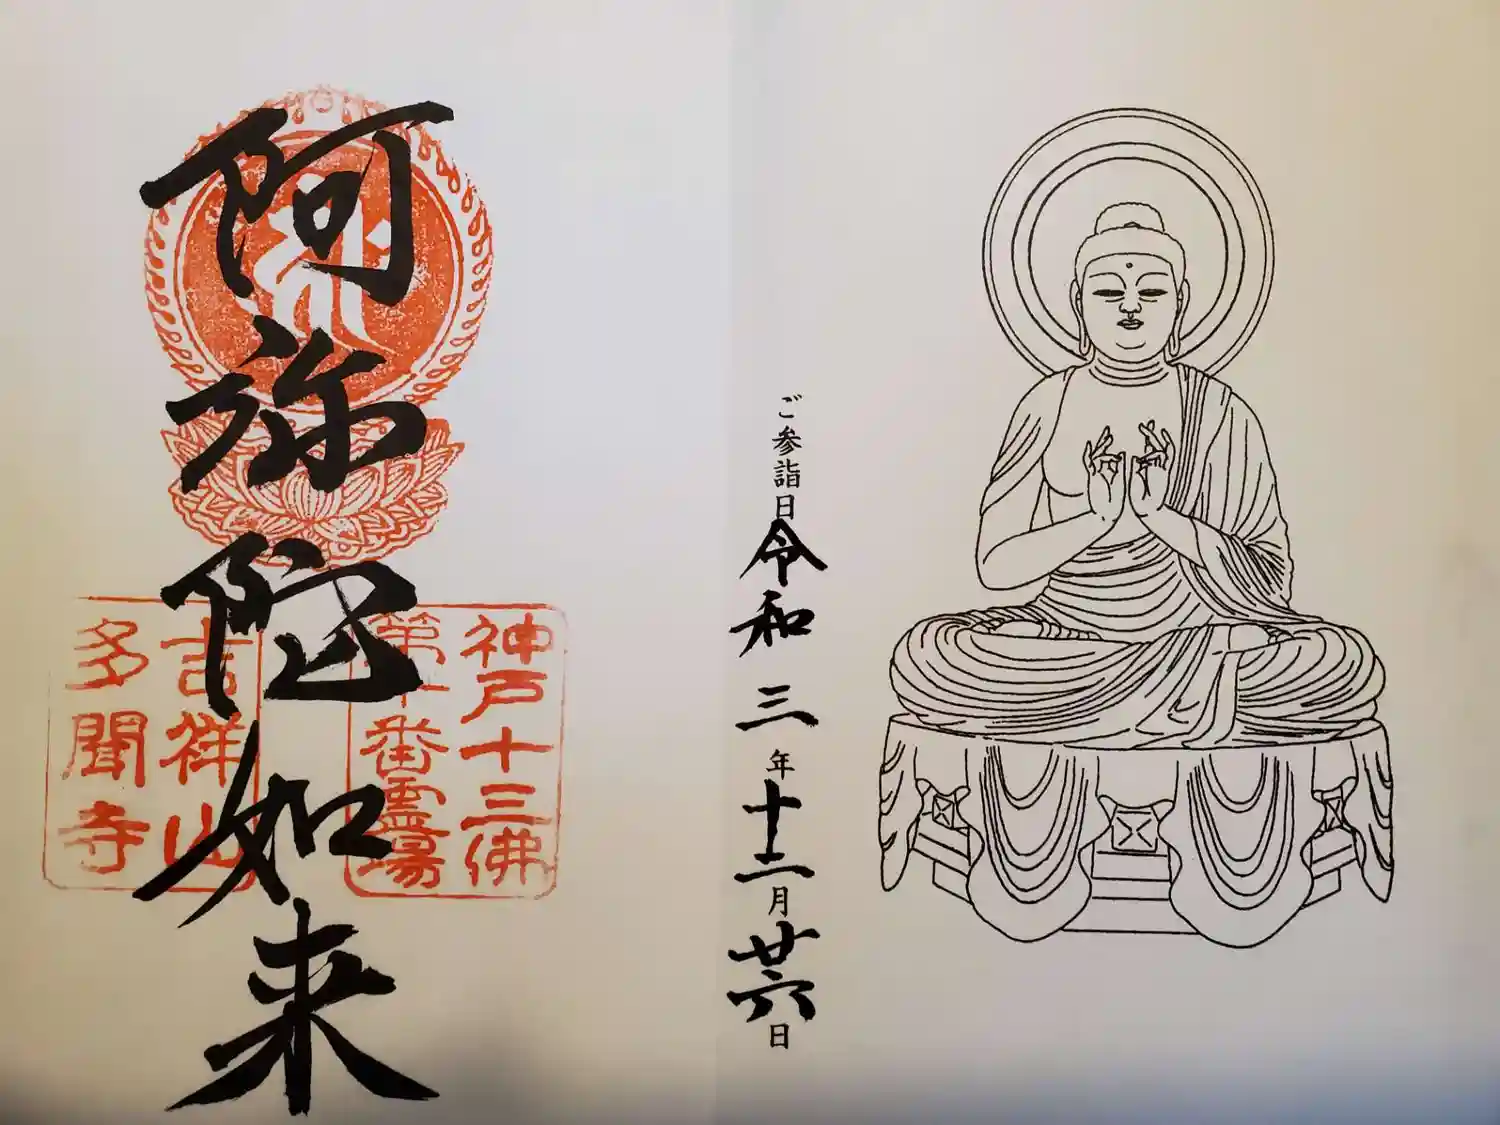 ご参詣日令和三年十二月廿六日
阿弥陀如来
神戸十三佛
第十番霊場
吉祥山
多聞寺